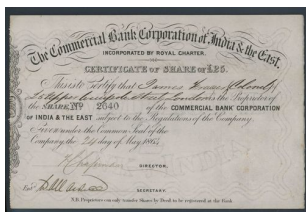 The Commercial Bank Corporation of India & the East.
INCORPORATED BY ROYAL CHARTER.
CERTIFICATE OF SHARE OF £25.
This is to Certify that James
is the Proprietor of
the SHARE, No 2640 of the COMMERCIAL BANK CORPORATION
OF INDIA & THE EAST subject to the Regulations of the Company.
Given under the Common Seal of the
Company, the 24 day of May 1864
DIRECTOR.
SECRETARY.
N.B. Proprietors can only transfer Shares by Deed to be registered at the Bank